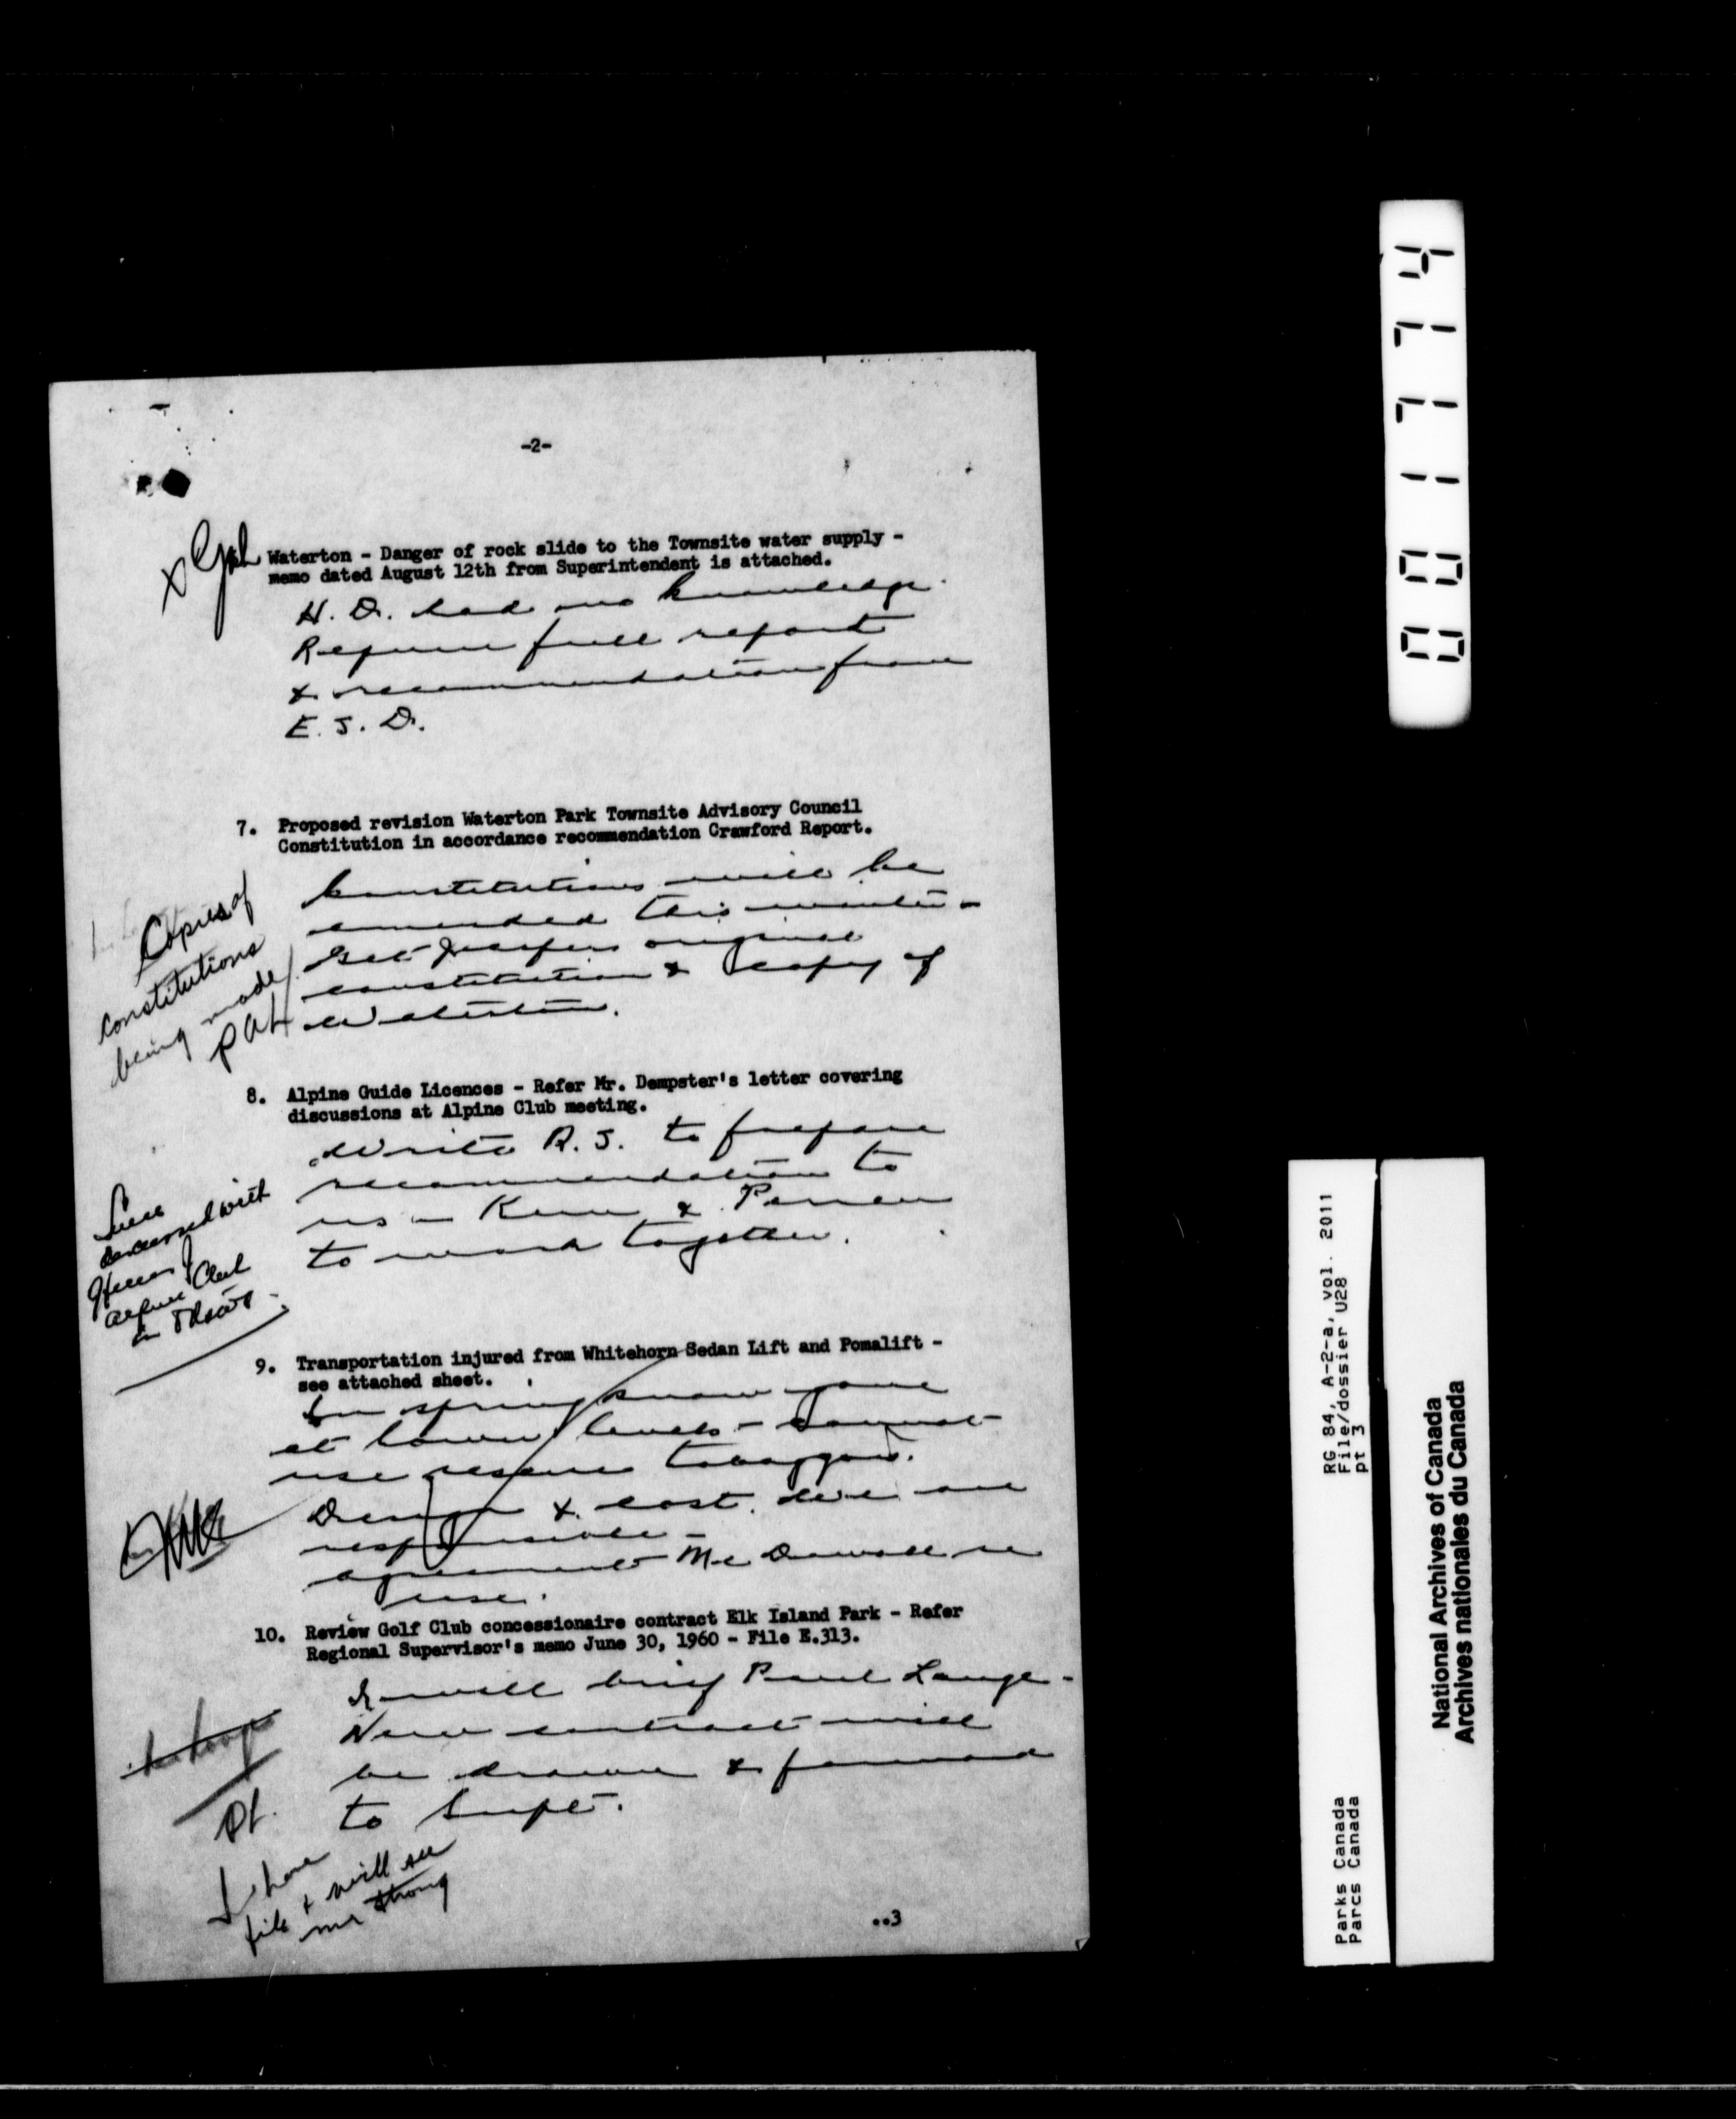 -2-
Waterton - Danger of rock slide to the Townsite water supply -
memo dated August 12th from Superintendent is attached.
H. O. had no knowledge.
Require full report
& recommendation from
E. S. D.
7. Proposed revision Waterton Park Townsite Advisory Council
Constitution in accordance recommendation Crawford Report.
Constitutions will be
amended this winter -
Get Jasper original
constitution & copy of
Waterton.
Copies of
constitutions
being made
8. Alpine Guide Licences - Refer Mr. Dempster's letter covering
discussions at Alpine Club meeting.
Write R. S. to prepare
recommendation to
us - &
to work together.
discussed with
Alpine Club
in
9. Transportation injured from Whitehorn Sedan Lift and Pomalift -
see attached sheet.
In spring snow gone
at lower levels - cannot
use rescue toboggan.
Design & cost. We are
responsible -
agreement re
use.
10. Review Golf Club concessionaire contract Elk Island Park - Refer
Regional Supervisor's memo June 30, 1960 - File E.313.
I will brief Paul Lange -
New contract will
be drawn & forward
to Supt.
I have
file & will see
Mr Strong
..3
001774
RG 84, A-2-a, vol. 2011
File/dossier U28
pt 3
Parks Canada
Parcs Canada
National Archives of Canada
Archives nationales du Canada